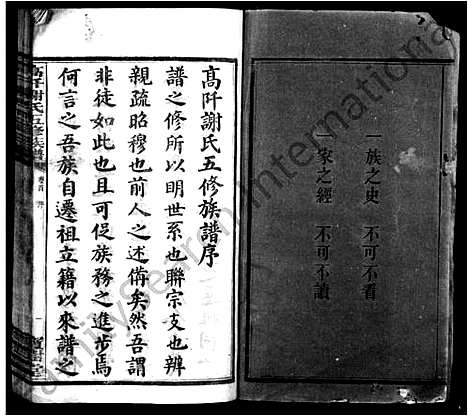 一族之史 不可不看
一家之經 不可不讀
高阡謝氏五修族譜序
譜之修所以明世系也聯宗支也辨
親疏昭穆也前人之述備矣然吾謂
非徒如此也且可促族務之進步焉
何言之吾族自遷祖立籍以來譜之
高阡謝氏五修族譜
卷首 序
一
寶樹堂
FamilySearch International